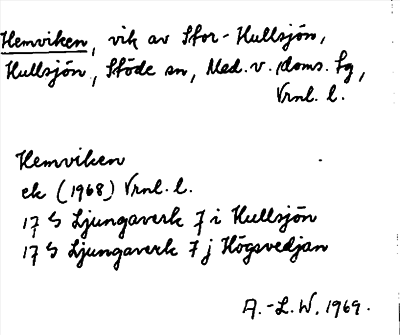 Hemviken, vik av Stor-Hullsjön,
Hullsjön, Stöde sn, Med.v. doms. tg,
Vrnl. l.
Hemviken
ek (1968) Vrnl. l.
17 G Ljungaverk 7 i Hullsjön
17 G Ljungaverk 7 j Högsvedjan
A.-L. W. 1969.